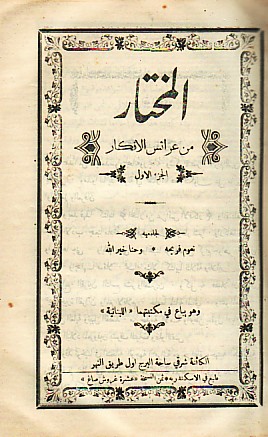 المختار
من عرائس الافكار
الجزء الاول
لجامعيه
نعوم فريحه * وحنا خيرالله
وهو يباع في مكتبتهما «اللبنانية»
الكائنة شرقي ساحة البرج اول طريق النهر
طبع في الاسكندرية * ثمن النسخة «عشرة غروش صاغ»